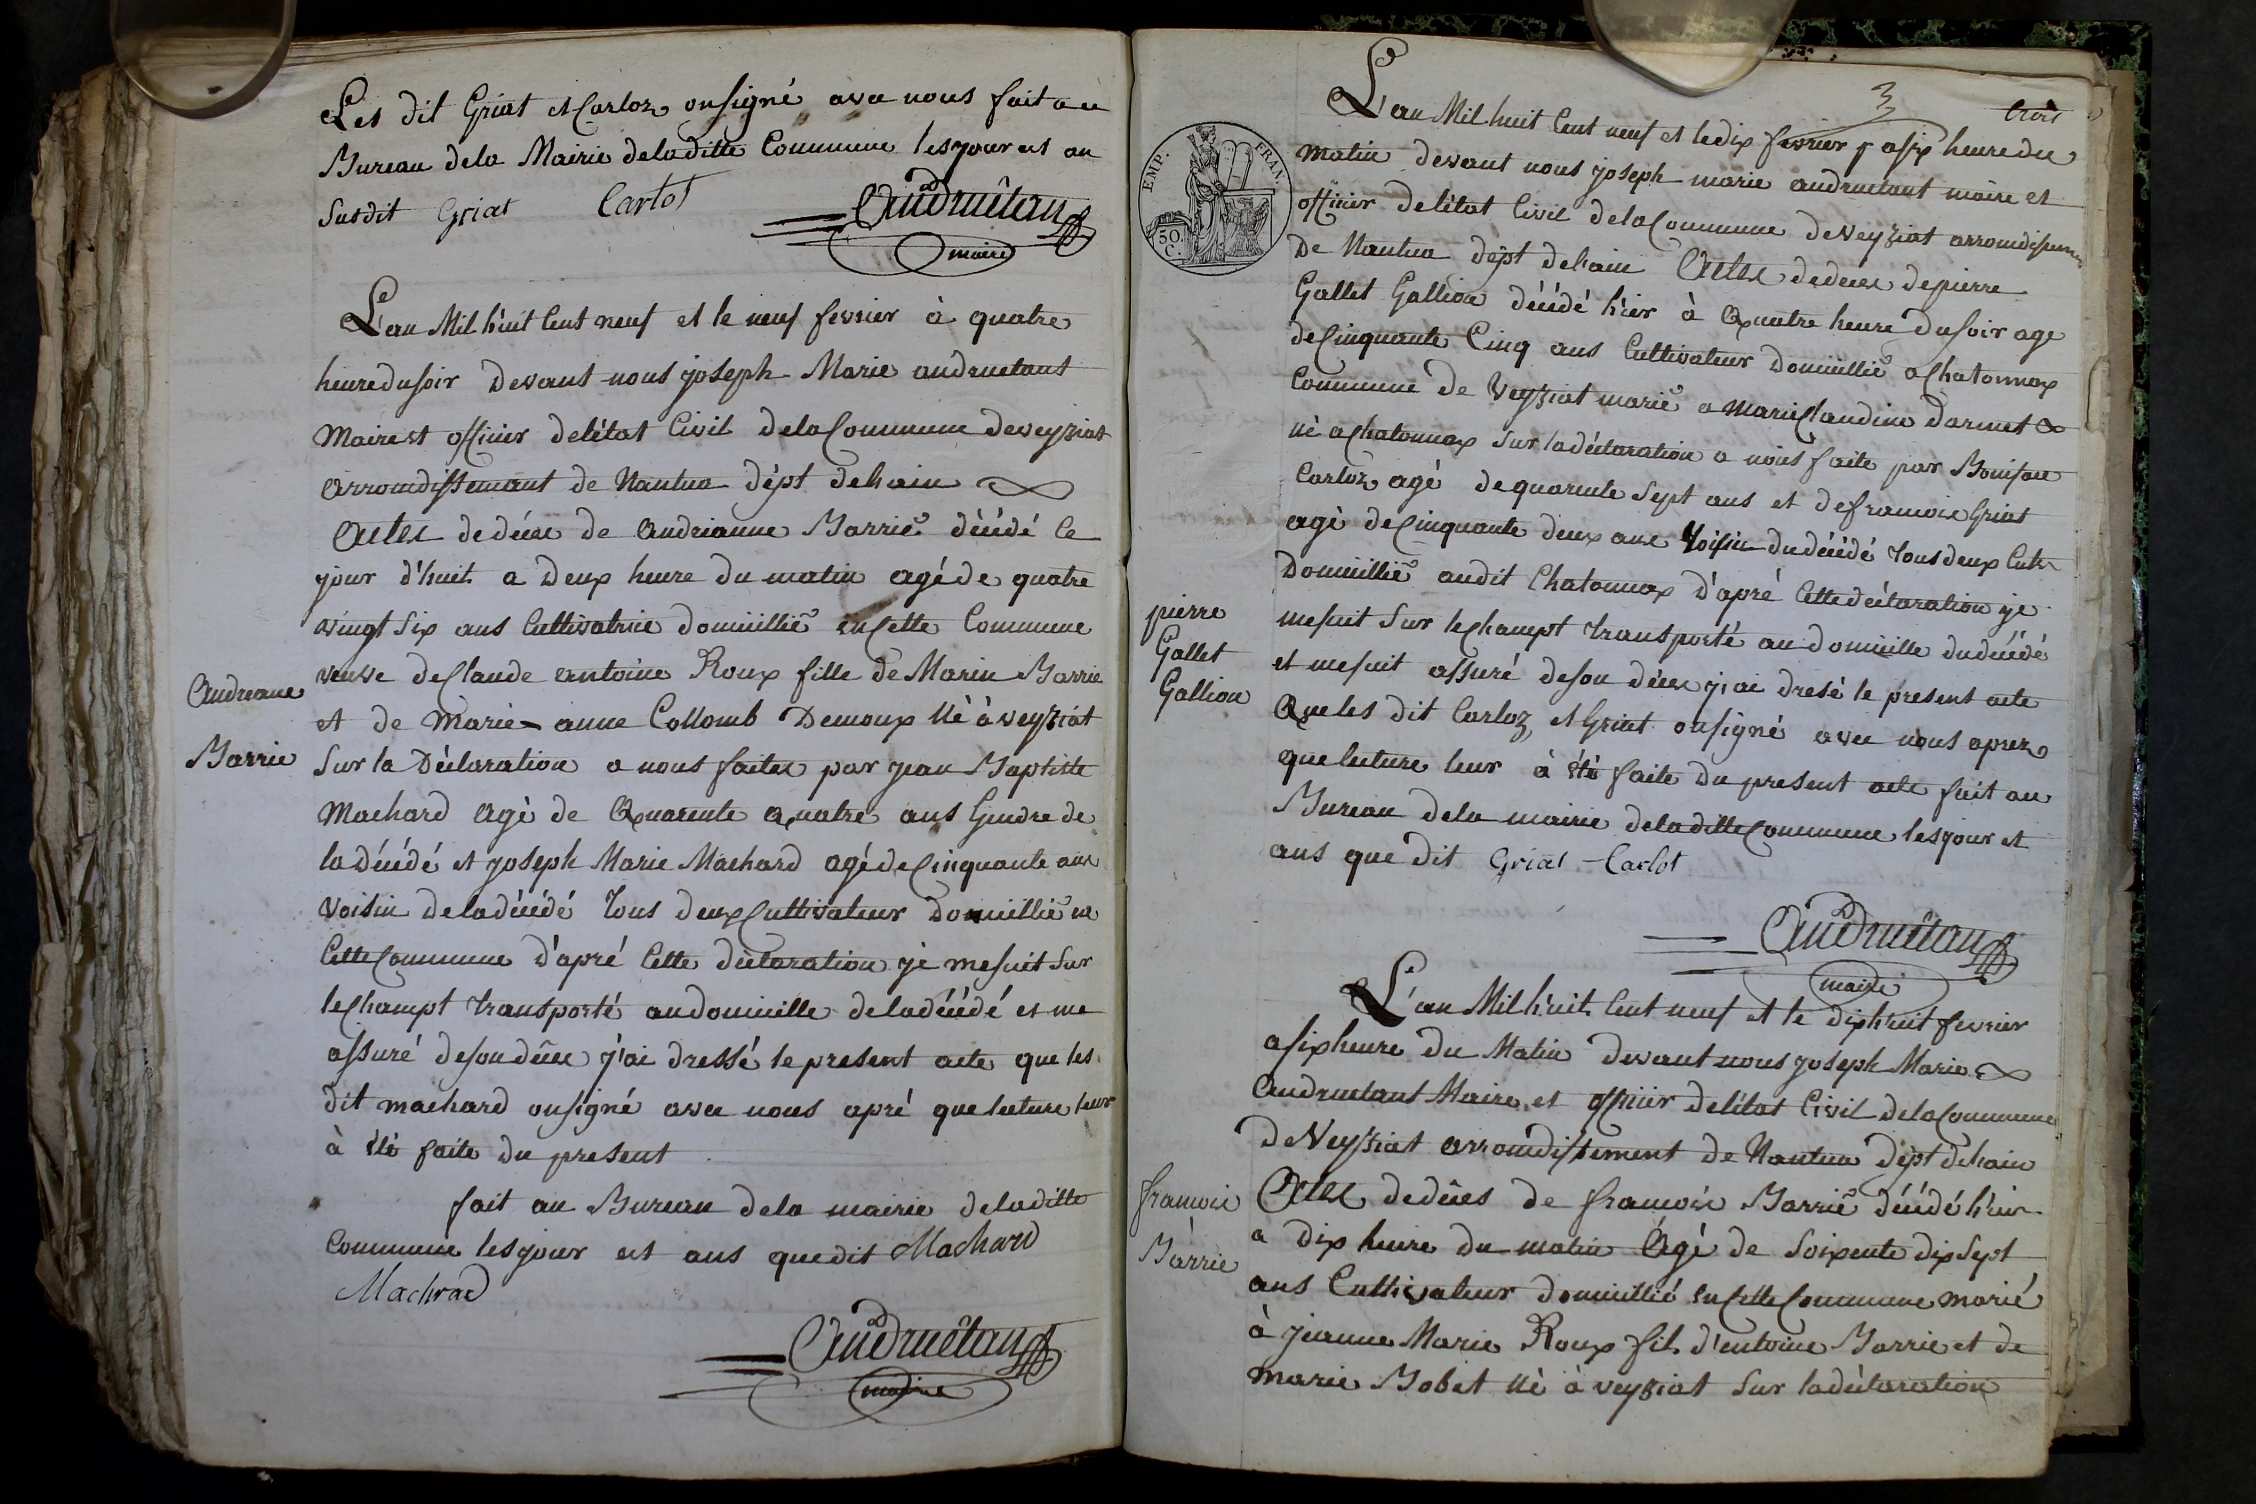 Les dit Griat et Carloz onsigné avec nous fait au
Bureau dela Mairie deladitte Commune lesjour et an
Susdit Griat Carlot
Audruétan
maire
L'an Mil h'uit Cent neuf et le neuf fevrier à quatre
heuredusoir Devant nous joseph Marie audruetant
Maire et officier delétat Civil dela Commune deveyziat
arromdissemant de Nantua dépt delain
Actes dedécée de Andrianne Barrié décédé le
jour d'huit a Deux heure du matin agéde quatre
vingt Six ans Cultivatrice domicillié en Cette Commune
veuve de Claude antoine Roux fille de Marin Barrie
et de Marie anne Collomb Demoux Né à veyziat
Sur la Déclaration a nous faites par jean Baptiste
Machard agé de Quarente quatre ans Gendre de
la Décédé et joseph Marie Machard agéde Cinquante ans
voisin deladécédé Tous deux Cultivateur Domicillié en
Cette Commune d'apré Cette déclaration je mesuit Sur
lechampt transporté audomicille deladécédé et me
assuré desondécée j'ai dressé le present acte que les
dit machard onsigné avec nous apré que lecture leur
à été faite du present
fait au Bureau dela mairie deladitte
Commune lesjour et ans quedit Machard
Machrad
Audruétan
maire
Andreane
Barrie
3
trois
L'an Mil huit Cent neuf et ledix fevrier a six heure du
matin devant nous joseph marie audruetant maire et
officier delétat Civil dela Commune deveyziat
De Nantua dépt delain Actes dedecée depierre
Gallet Gallion décédé h'ier à Quatre heure dusoir age
de Cinquante Cinq ans Cultivateur Domicillié a Chatonnax
Commune de Veyziat marié a marie Claudine Darmet
né a Chatonnax Sur ladéclaration a nous faite par Boniface
Carloz agé de quarente Sept ans et defrancois Griat
agé de Cinquante deux ans Voisin du décédé Tous deux Cult
Domicillié audit Chatonnax D'apré Cette déclaration je
mesuit Sur lechampt transporté au domicille dudécédé
et mesuit assuré deson décée j'ai dresé le present acte
Que les dit Carloz et Griat onsigné avec nous aprez
que lecture leur à été faite Du present acte fait au
Bureau dela mairie deladitte Commune lesjour et
ans que dit Griat Carlot
Audruétan
maire
EMP. FRAN.
50.
C.
pierre
Gallet
Gallion
L'an Mil h'uit Cent neuf et le dixhuit fevrier
asixheure du Matin devant nous joseph Marie
audruetant Maire et officier delétat Civil dela Commune
de Veyziat arromdissement de Nantua dépt delain
Actes dedées de francois Barrié décédé h'ier
a dix heure du matin agé de Soixente dix Sept
ans Cultivateur domicillié en Cette Commune marié
à jeanne Marie Roux fils d'entoine Barrie et de
marie Bobet né à veyziat Sur ladéclaration
francois
Barrie